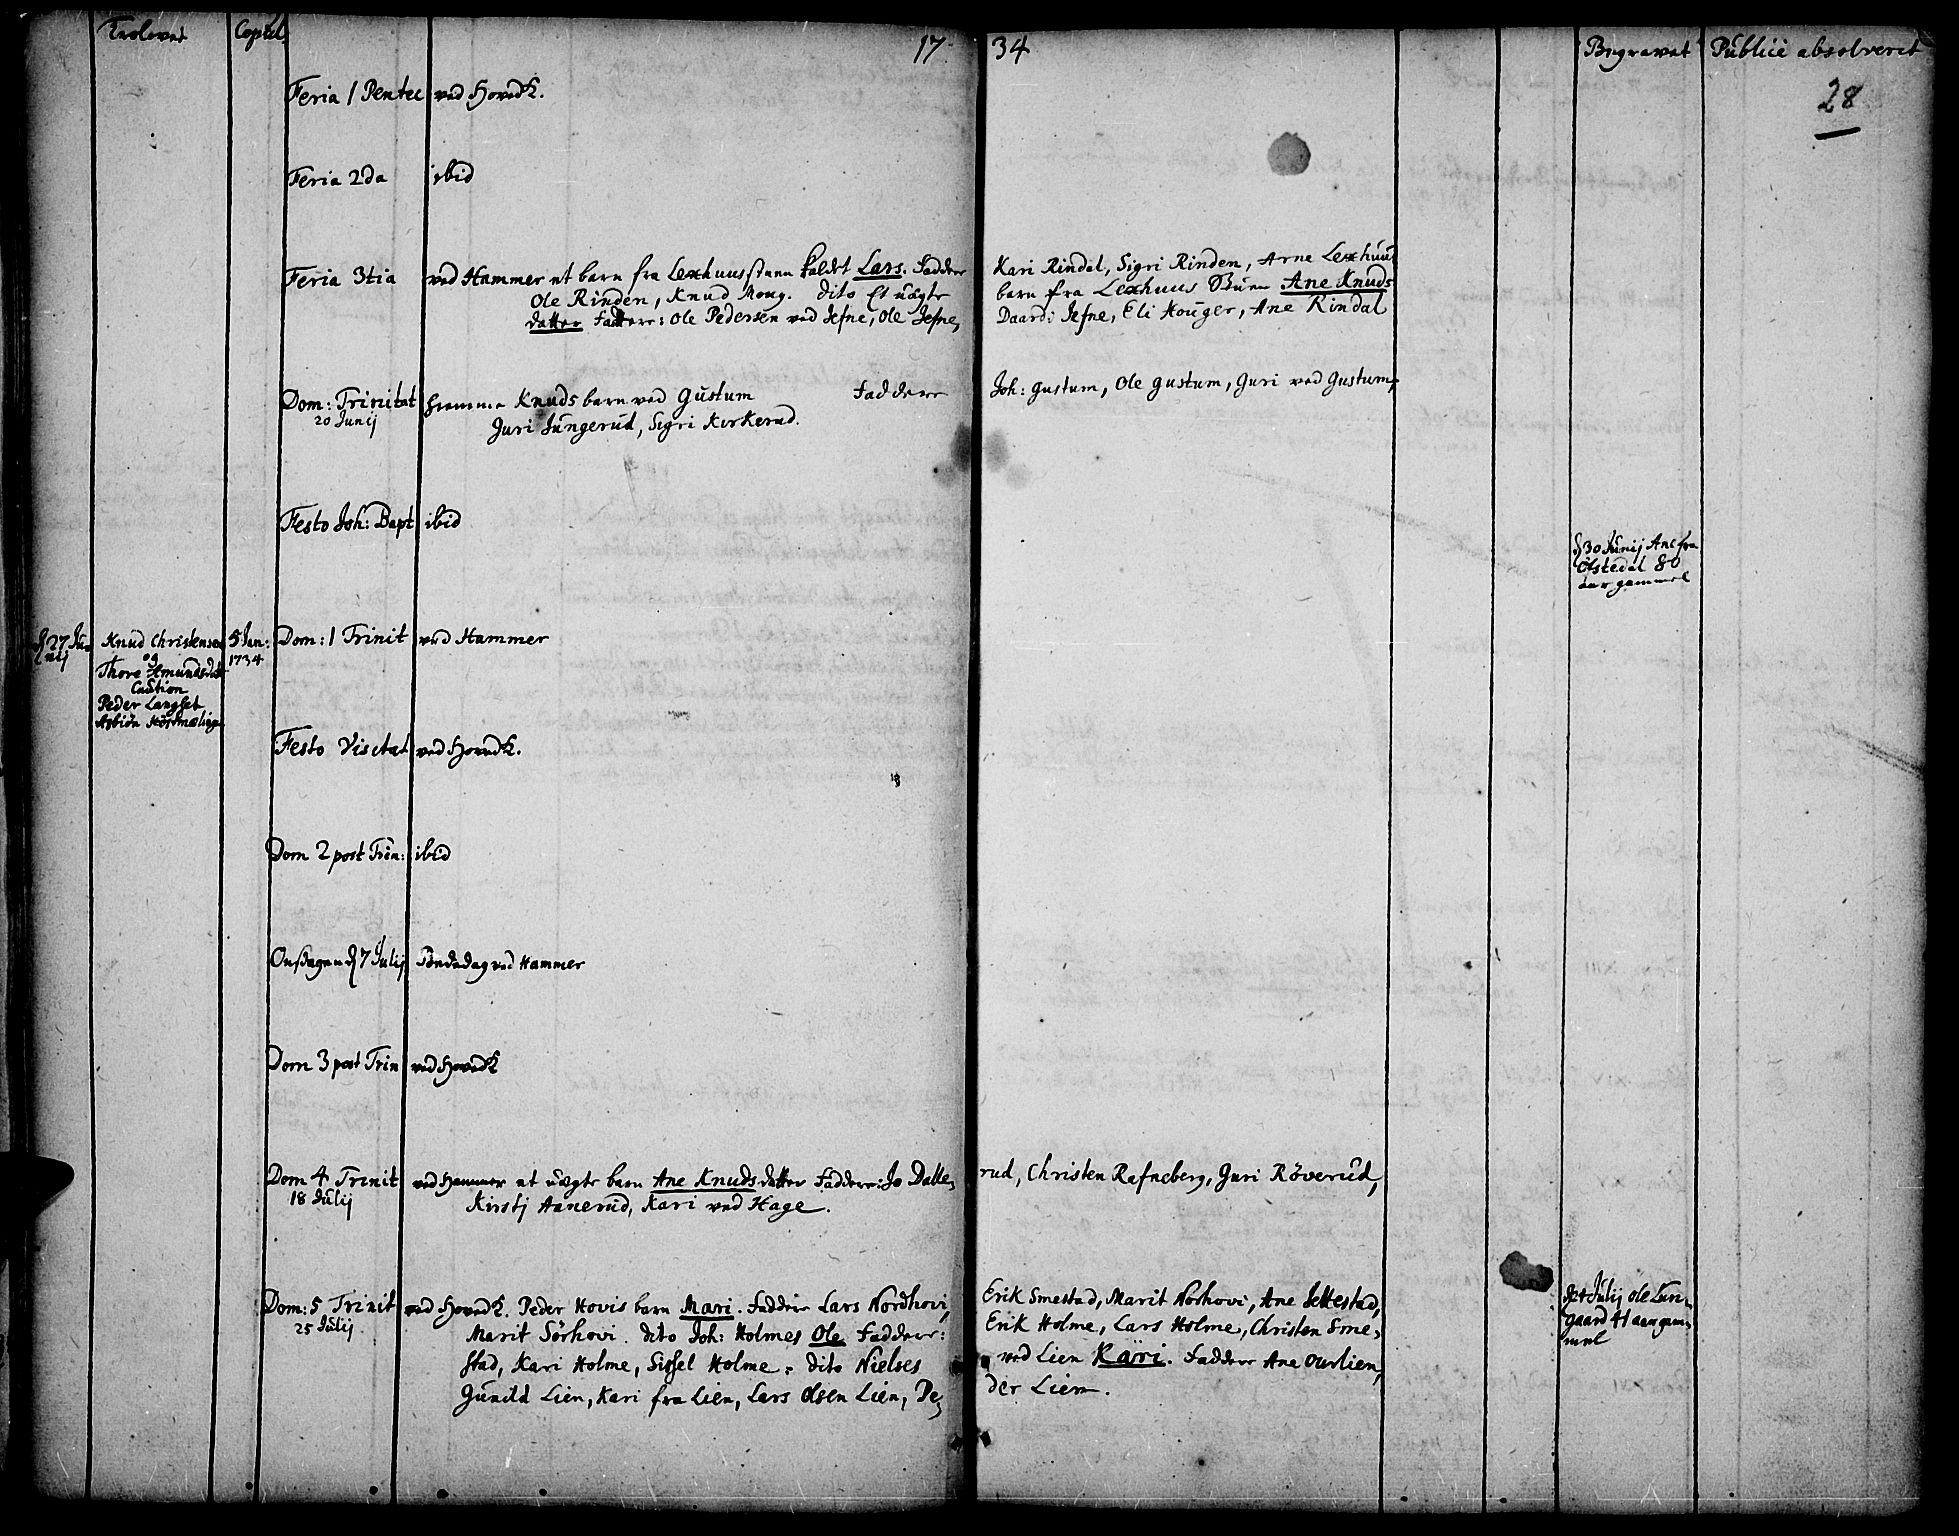 Trolovet
Copul.
17
34
Begravet
Publicè absolveret
28
Feria 1 Pentec ved HovedK.
Feria 2da ibid
Feria 3tia ved Hammer et barn fra Lexhuus kaldet Lars. Faddere Kari Rindal, Sigri Rinden, Arne Lexhuus
Ole Rinden, Knud Moug. dito Et uægte barn fra Lexhuus Ane Knuds
datter Faddere: Ole Pedersen ved Jefne, Ole Jefne, Daard: Jefne, Eli Houger, Ane Rindal
Dom: Trinitat Hiemme Knuds barn ved Gustum Faddere Joh: Gustum, Ole Gustum, Guri ved Gustum,
20 Junij Juri Jungerud, Sigri Kirkerud.
Festo Joh: Bapt ibid
d 30 Junij Ane fra
Øfstedal 80
aar gammel
d 27 Ju-
nij
Knud Christensen
og
Thore Amundsdat
Caution
Peder Langset
Asbiøn
5 Jan:
1734
Dom: 1 Trinit ved Hammer
Festo Visitat ved HovedK.
Dom 2 post Trin: ibid
Onsdagen d 7 Julij Bøndedag ved Hammer
Dom 3 post Trin ved HovedK
Dom 4 Trinit ved Hammer et uægte barn Ane Knudsdatter Faddere: Jo Dalle, rud, Christen Rafneberg, Guri Røverud,
18 Julij Kirstj Aanerud, Kari ved Hage.
Dom: 5 Trinit ved HovedK. Peder Hovis barn Mari. Faddere Lars Nordhovi, Erik Smestad, Marit Norhovi, Ane Jettestad,
25 Julij Marit Sørhovi. dito Joh: Holmes Ole Faddere: Erik Holme, Lars Holme, Christen Sme,
stad, Kari Holme, Sissel Holme. dito Nielses ved Lien Kari. Faddere Ane Ourlien,
Gunild Lien, Kari fra Lien, Lars Olsen Lien, Pe, der Lien.
d 24 Julij Ole Lun-
gaard 41 aar gam-
mel